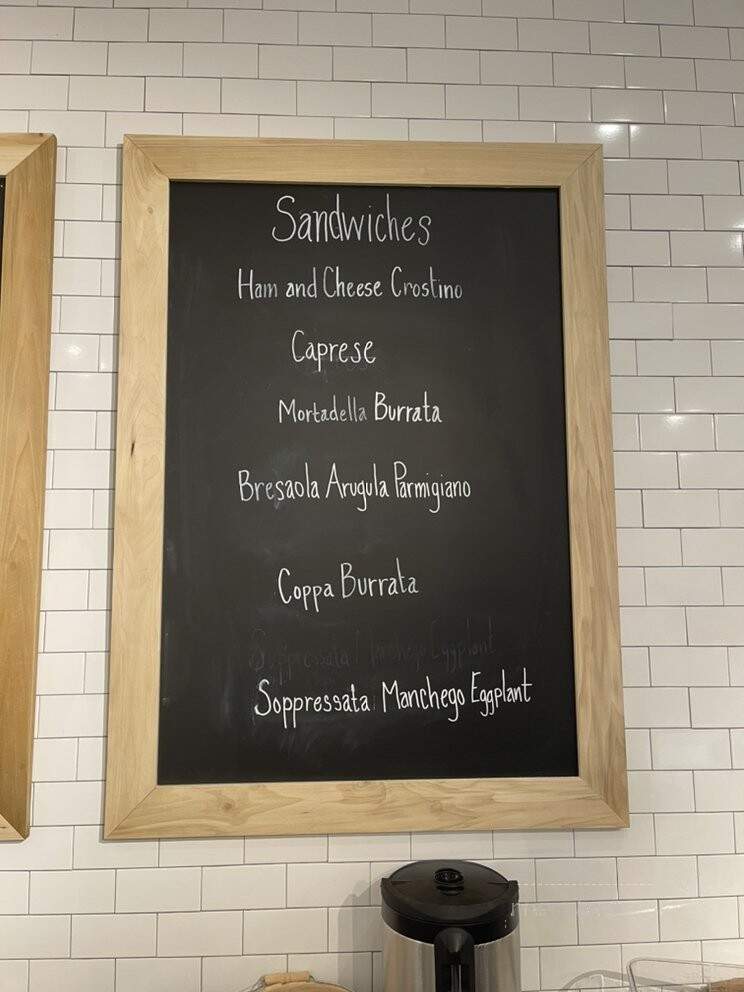 Sandwiches
Ham and Cheese Crostino
Caprese
Mortadella Burrata
Bresaola Arugula Parmigiano
Coppa Burrata
Soppressata Manchego Eggplant
Soppressata Manchego Eggplant